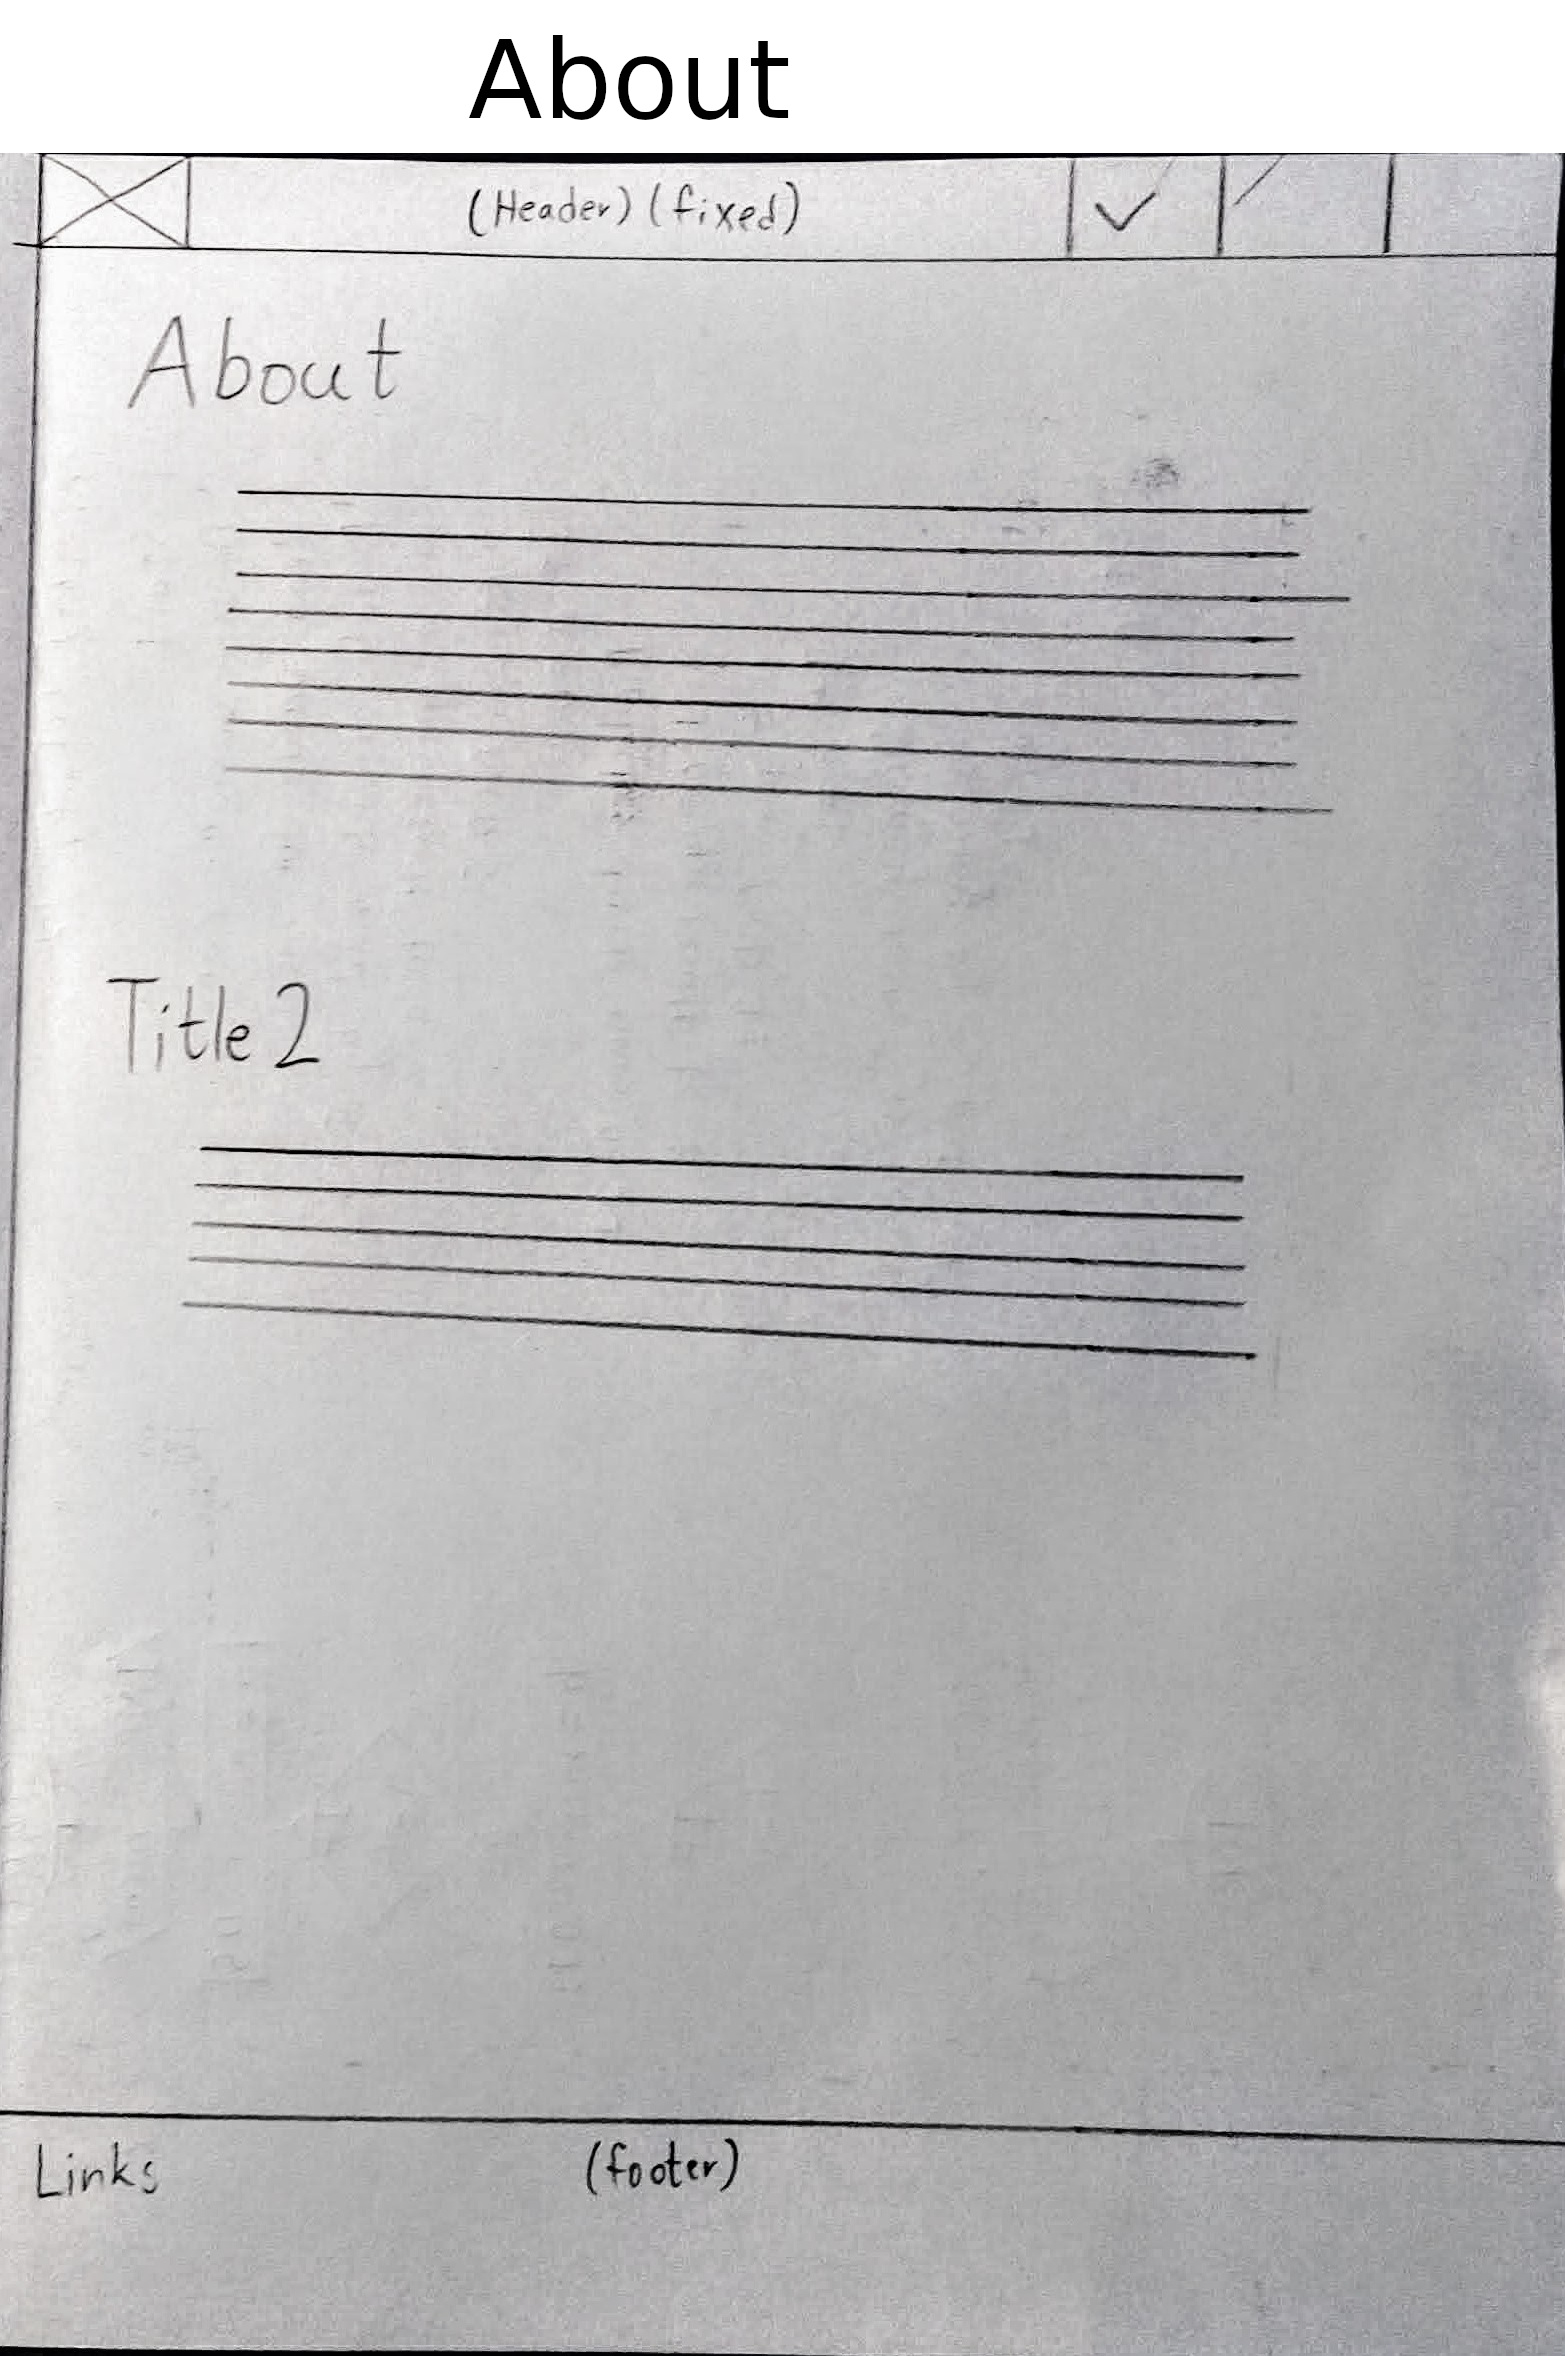 About
(Header) (fixed)
About
Title 2
Links
(footer)